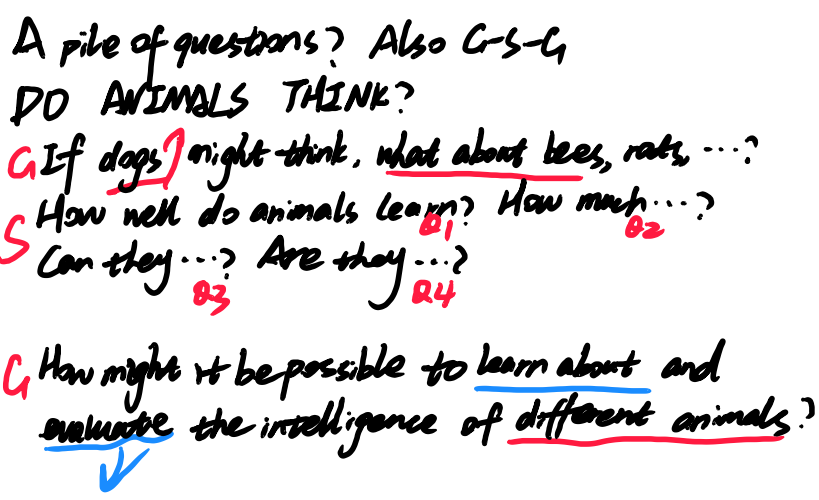 A pile of questions? Also G-S-G
DO ANIMALS THINK?
G If dogs might think, what about bees, rats, ...?
S How well do animals learn? How much...?
Q1 Q2
Can they ...? Are they ...?
Q3 Q4
G How might it be possible to learn about and
evaluate the intelligence of different animals?